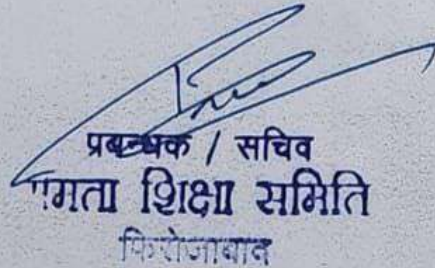 प्रबन्धक / सचिव
शिक्षा समिति
फिरोजाबाद